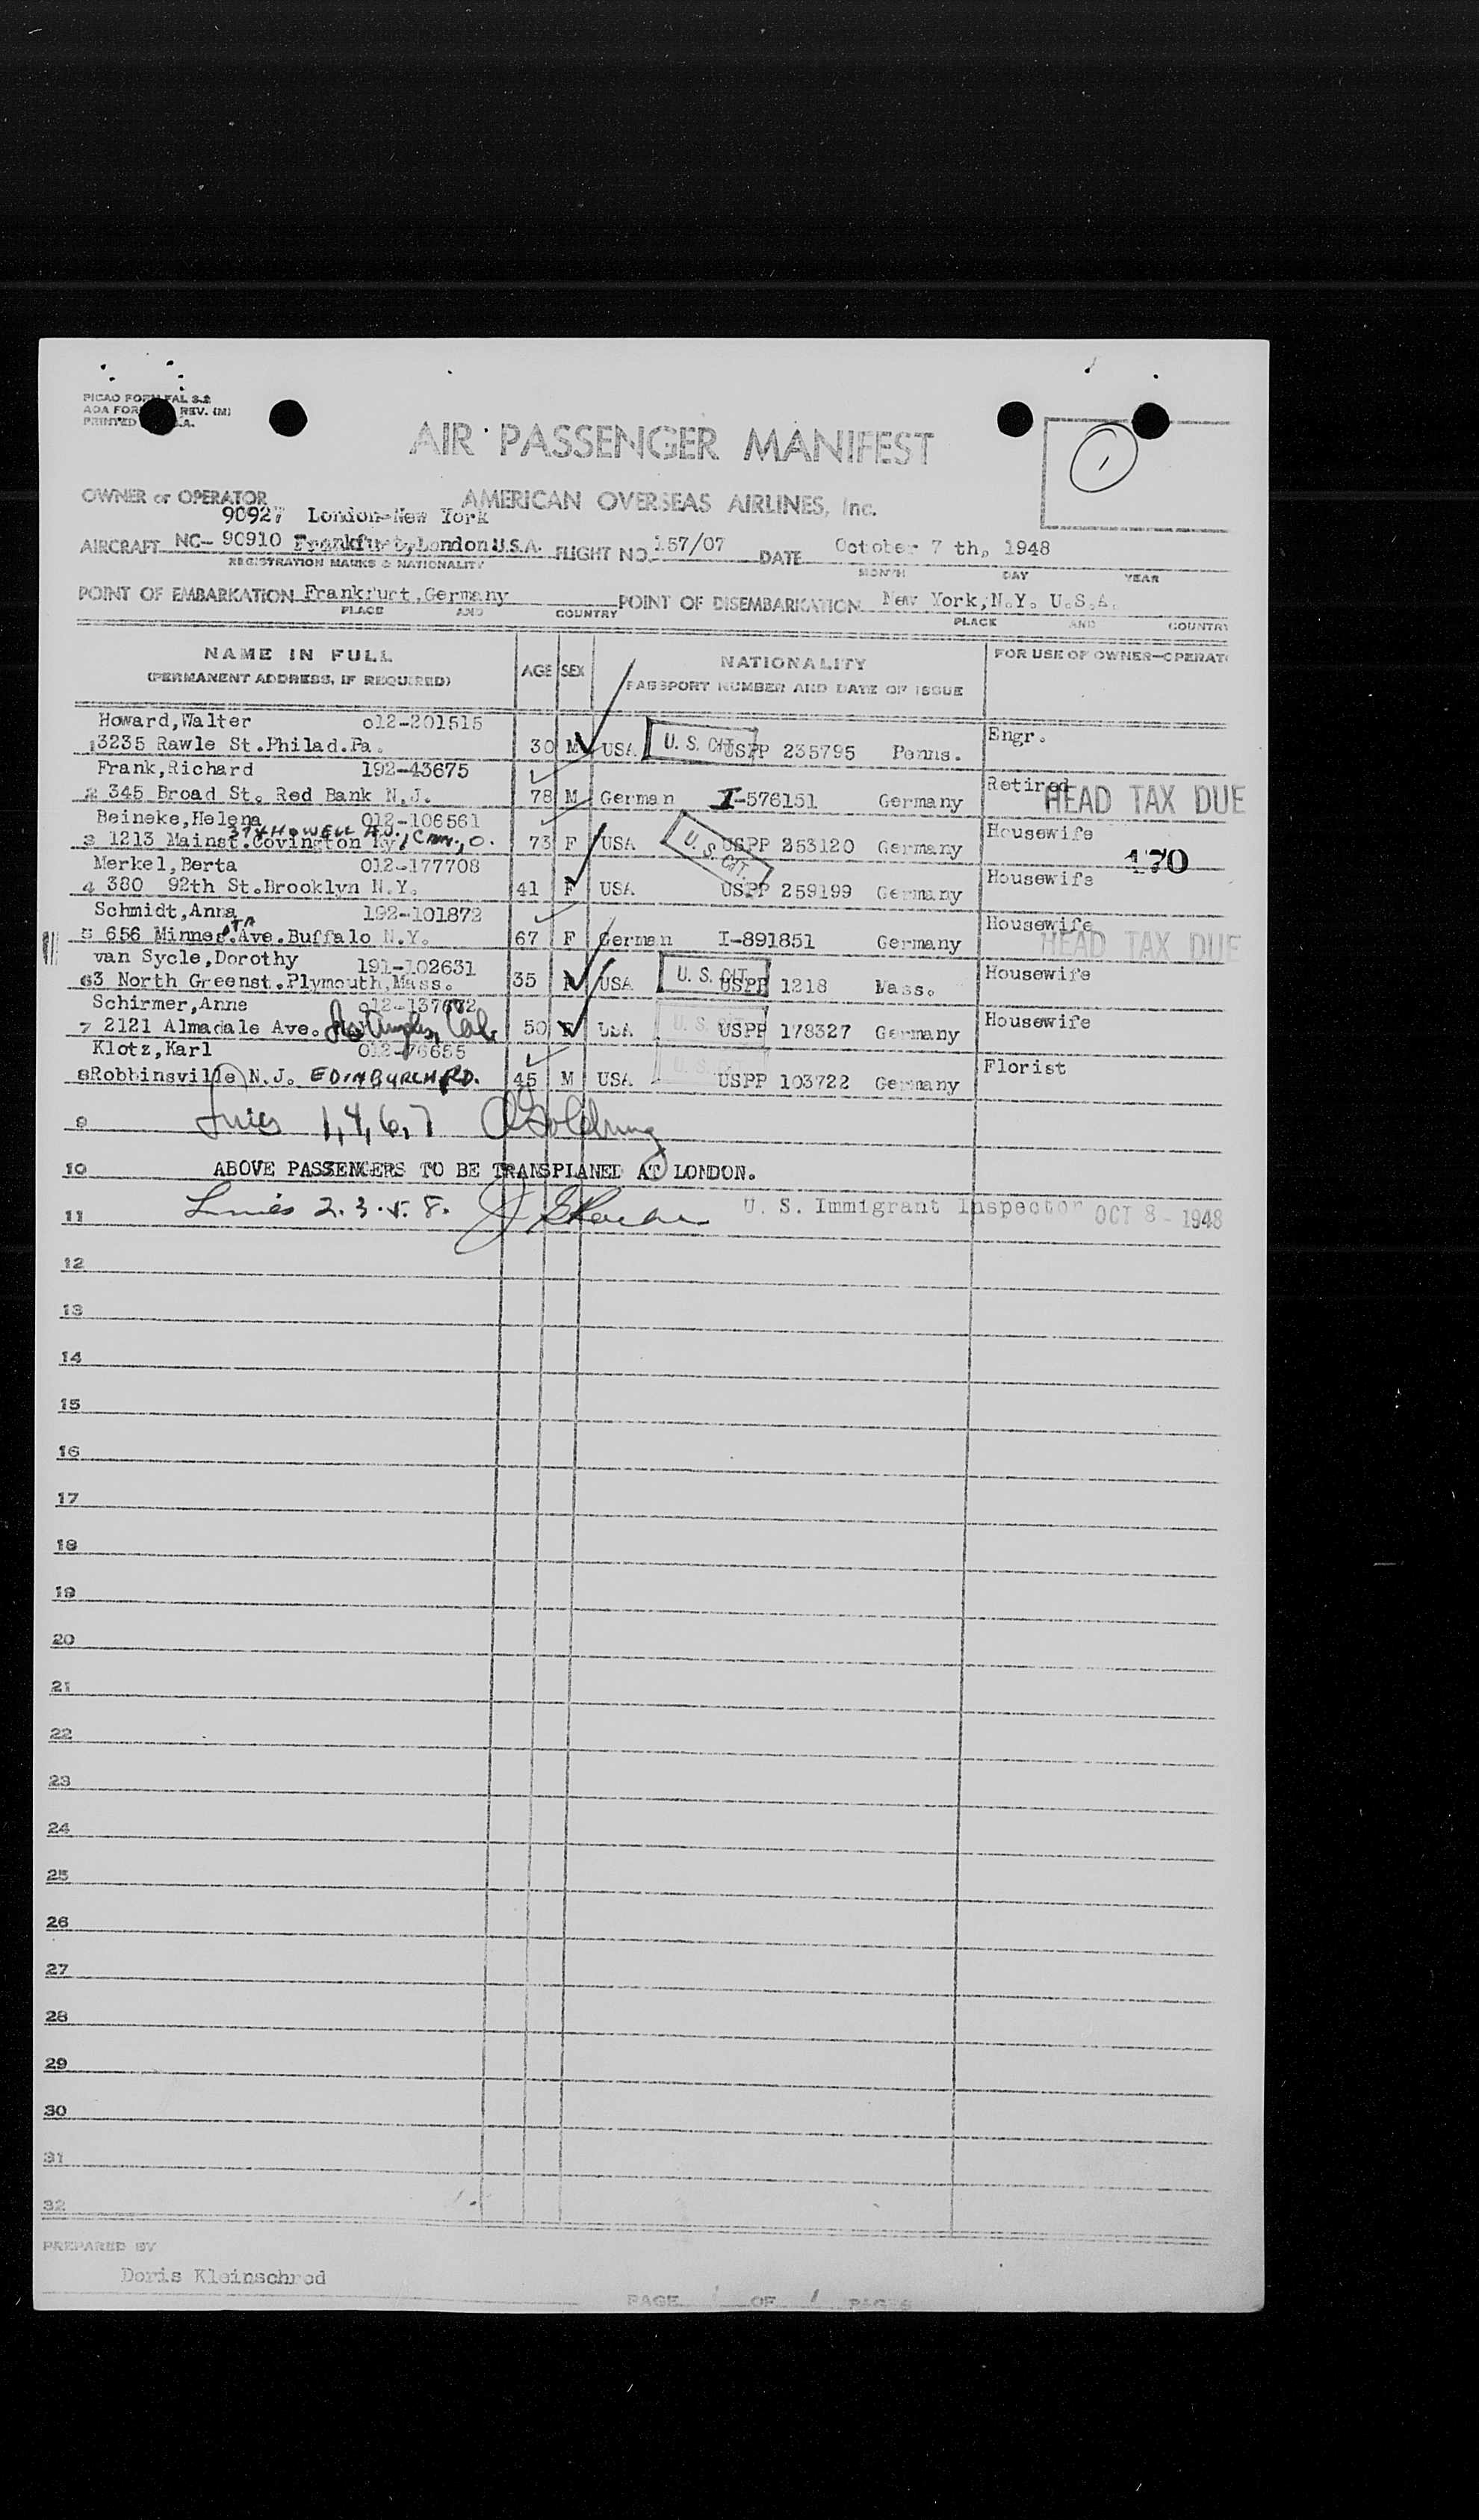 PICAO FORM FAL S.2
ADA FOR REV. (M)
PRINTED
AIR PASSENGER MANIFEST
1
OWNER or OPERATOR AMERICAN OVERSEAS AIRLINES, Inc.
90927 London-New York
AIRCRAFT NC- 90910 Frankfurt,London U.S.A. FLIGHT NO. 157/07 DATE October 7 th, 1948
REGISTRATION MARKS & NATIONALITY MONTH DAY YEAR
POINT OF EMBARKATION Frankfurt,Germany POINT OF DISEMBARKATION New York,N.Y. U.S.A.
PLACE AND COUNTRY PLACE AND COUNTRY
NAME IN FULL AGE SEX NATIONALITY FOR USE OF OWNER-OPERAT
(PERMANENT ADDRESS, IF REQUIRED) PASSPORT NUMBER AND DATE OF ISSUE
Howard,Walter o12-201515 Engr.
1 3235 Rawle St.Philad.Pa. 30 M USA U. S. CIT. USPP 235795 Penns.
Frank,Richard 192-43675 Retired
2 345 Broad St. Red Bank N.J. 78 M German I-576151 Germany HEAD TAX DUE
Beineke,Helena 012-106561 Housewife
3 1213 Mainst.Covington Ky. HOWELL 73 F USA U. S. CIT. USPP 253120 Germany 170
Merkel,Berta 012-177708 Housewife
4 380 92th St.Brooklyn N.Y. 41 F USA USPP 259199 Germany
Schmidt,Anna 192-101872 Housewife
5 656 Minnes.Ave.Buffalo N.Y. 67 F German I-891851 Germany HEAD TAX DUE
van Sycle,Dorothy 191-102631 Housewife
6 3 North Greenst.Plymouth,Mass. 35 F USA U. S. CIT. USPP 1218 Mass.
Schirmer,Anna o12-137672 Housewife
7 2121 Almadale Ave. Los Angeles, Cal. 50 F USA U. S. CIT. USPP 178327 Germany
Klotz,Karl 012-76655 Florist
8 Robbinsville N.J. EDINBURGH RD. 45 M USA U. S. CIT. USPP 103722 Germany
9 Lines 1, 4, 6, 7
10 ABOVE PASSENGERS TO BE TRANSPLANED AT LONDON.
11 Lines 2. 3. 5. 8. U. S. Immigrant Inspector OCT 8 - 1948
12
13
14
15
16
17
18
19
20
21
22
23
24
25
26
27
28
29
30
31
32
PREPARED BY
Doris Kleinschrod
PAGE 1 OF 1 PAGES